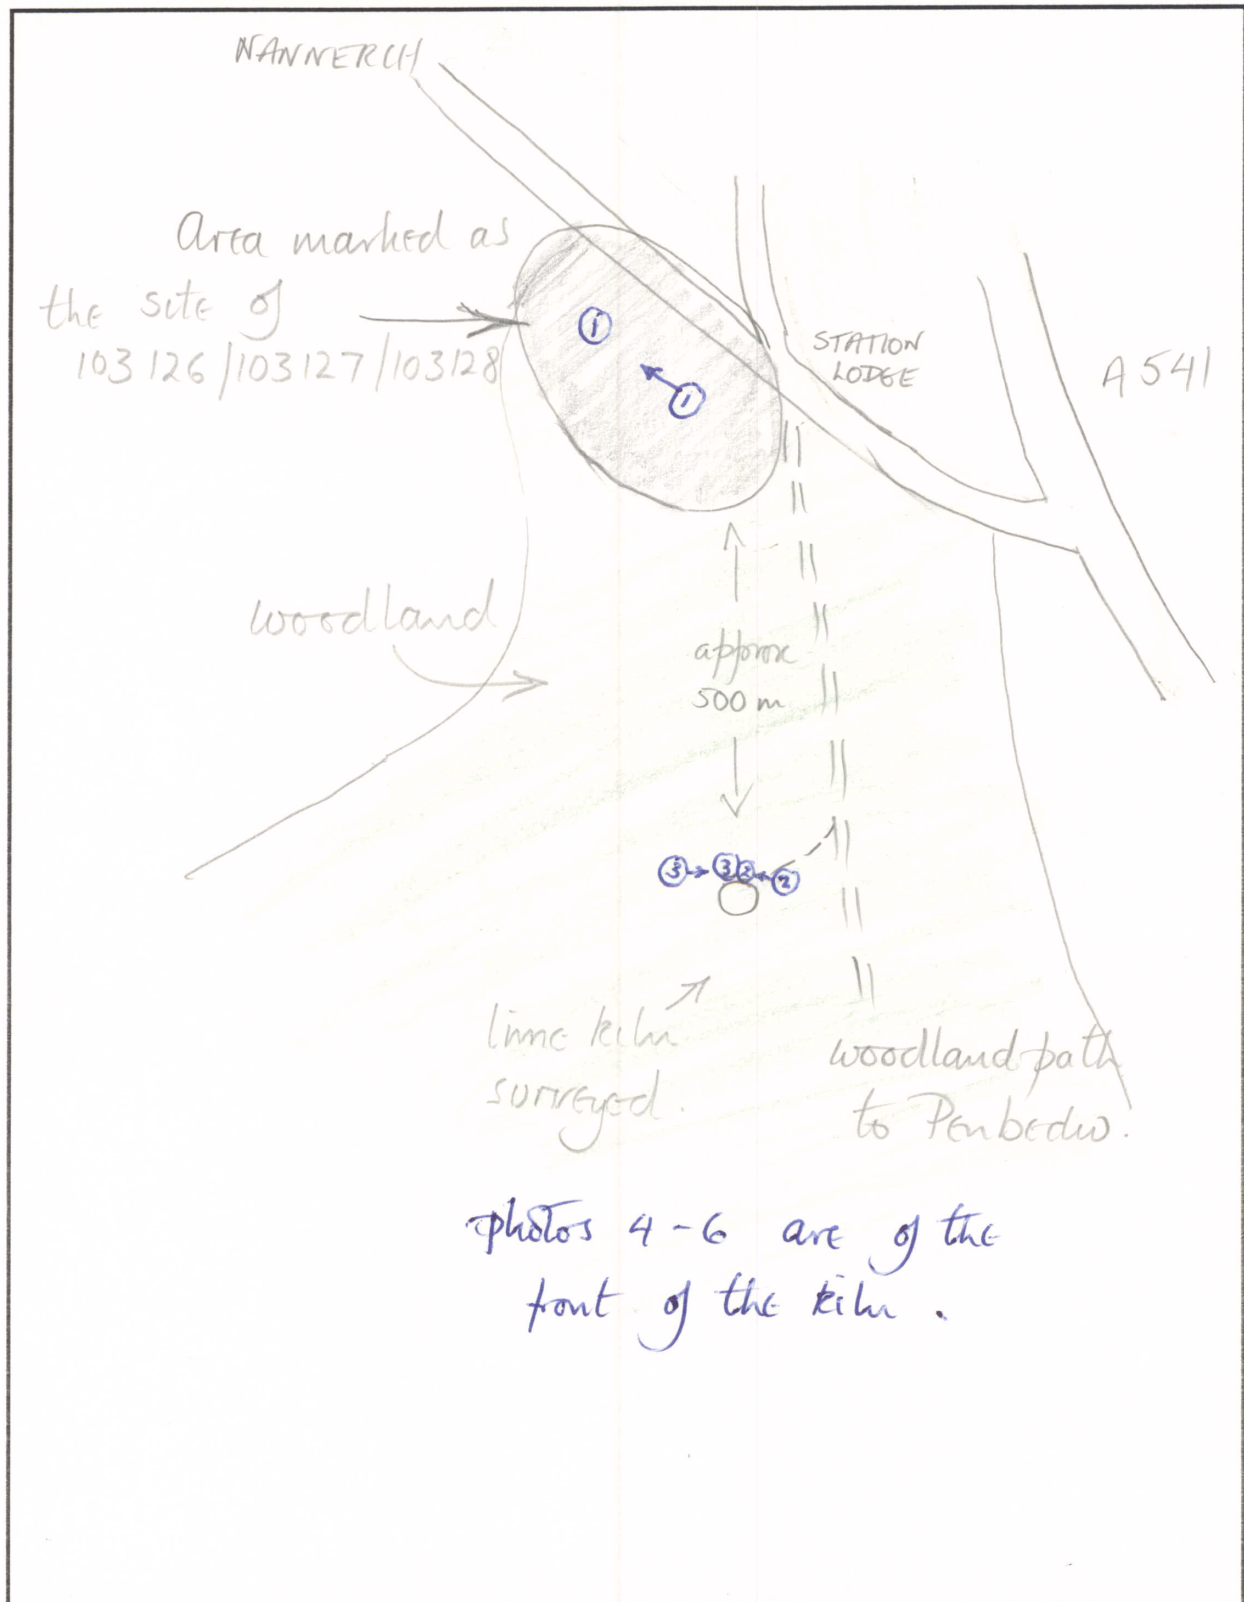 NANNERCH
Area marked as
the site of
103126/103127/103128
1
1
STATION
LODGE
A541
woodland
approx
500m
3 3 2 2
lime kiln
surveyed.
woodland path
to Penbedw.
photos 4-6 are of the
front of the kiln.